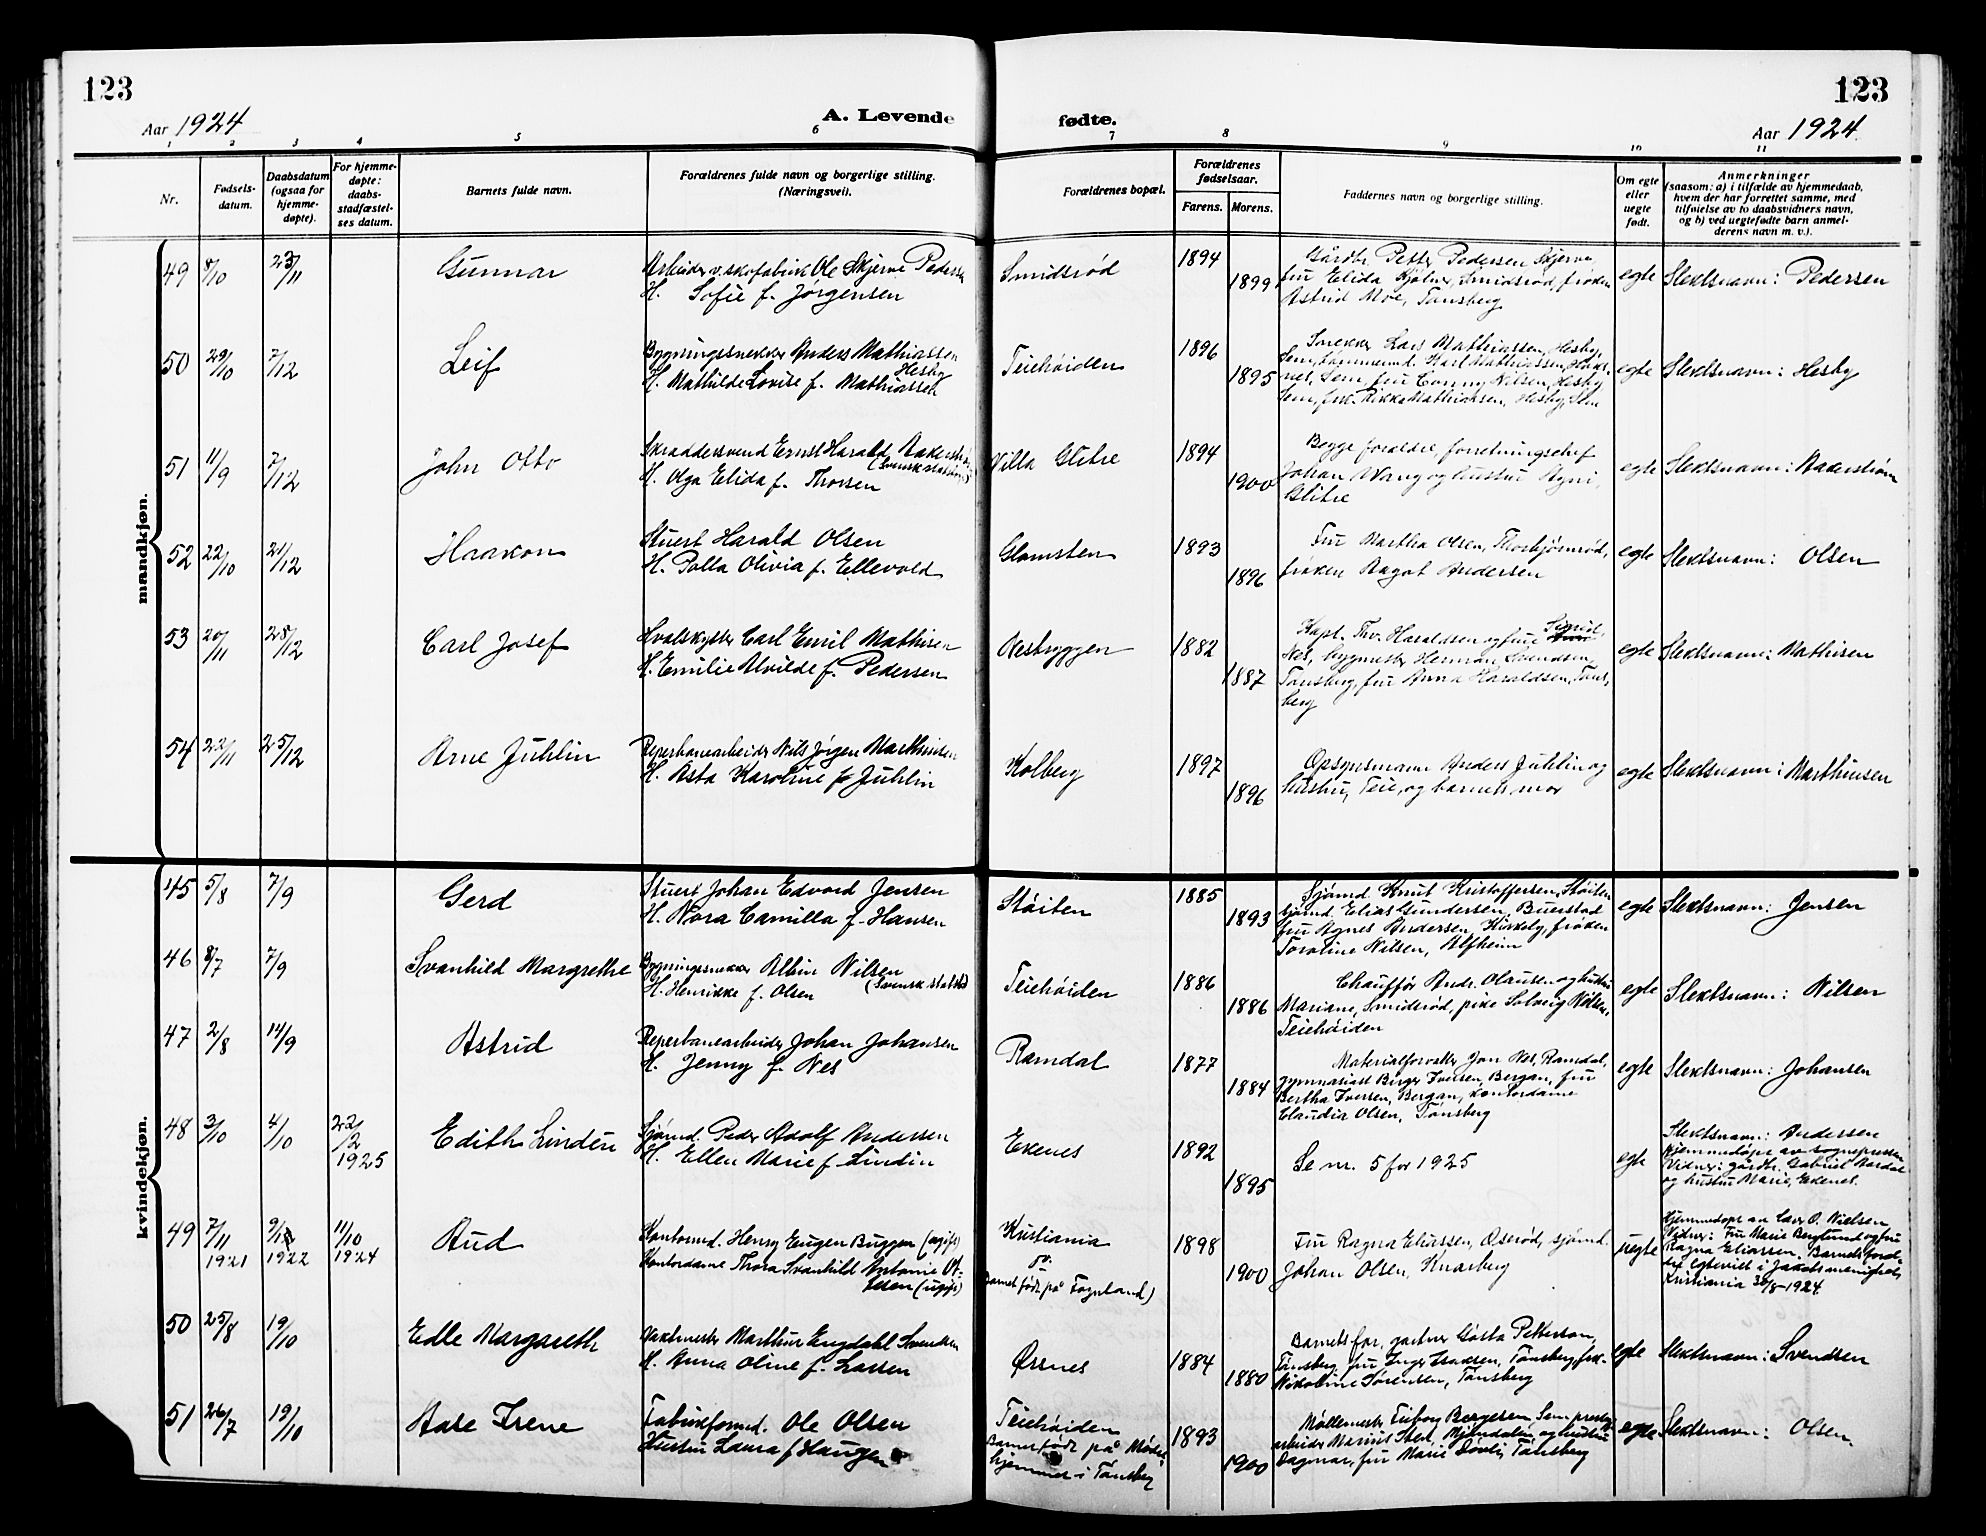 123
123
Aar 1924
A. Levende fødte.
Aar 1924.
1 2 3 4 5 6 7 8 9 10 11
Nr.
Fødsels-
datum.
Daabsdatum
(ogsaa for
hjemme-
døpte).
For hjemme-
døpte:
daabs-
stadfæstel-
ses datum.
Barnets fulde navn.
Forældrenes fulde navn og borgerlige stilling.
(Næringsvei).
Forældrenes bopæl.
Forældrenes
fødselsaar.
Farens. Morens.
Faddernes navn og borgerlige stilling.
Om egte
eller
uegte
født.
Anmerkninger
(saasom: a) i tilfælde av hjemmedaab,
hvem der har forrettet samme, med
tilføielse av to daabsvidners navn,
og b) ved uegtefødte barn anmel-
derens navn m. v.).
mandkjøn.
49 8/10 23/11 Gunnar
Arbeider v. skofabrik Ole Skjerve Pedersen
H. Sofie f. Jørgensen
Smidsrød 1894 1899
Gårdbr. Petter Pedersen Skjerve
fru Elida Smidsrød, frøken
Astrid Moe, Tønsberg
egte Slektsnavn: Pedersen
50 29/10 7/12 Leif
Bygningssnekker Anders Mathiassen Hesby
H. Mathilde Lovise f. Mathiassen
Teiehøiden 1896 1895
Snekker Lars Mathiassen, Hesby,
Sem, Karl Mathiassen,
Sem, fru Conny Nilsen, Hesby
Sem, frk. Rikka Mathiassen, Hesby, Sem
egte Slektsnavn: Hesby
51 11/9 7/12 John Otto
Skraddersvend Ernst Harald
H. Olga Elida f. Thorsen
Villa Glitre 1894 1900
Begge forældre, forretningschef
Johan Wang og hustru Agni,
Glitre
egte Slektsnavn:
52 22/10 21/12 Haakon
Stuert Harald Olsen
H. Palla Olivia f. Ellevold
Glomsten 1893 1896
Fru Martha Olsen, Thorbjørnrød,
frøken Ragot Andersen
egte Slektsnavn: Olsen
53 20/11 28/12 Carl Josef
Hvalskytter Carl Emil Mathisen
H. Emilie Alvilde f. Pedersen
Nesbryggen 1882 1887
Kapt. Thv. Haraldsen og frue Sigrid,
Nes, bygmester Herman Svendsen,
Tønsberg, fru Anna Haraldsen, Tøns-
berg
egte Slektsnavn: Mathisen
54 22/11 25/12 Arne Juhlin
Reperbanearbeider Nils Jørgen Marthinsen
H. Asta Karoline f. Juhlin
Kolberg 1897 1896
Opsynsmann Anders Juhlin og
hustru, Teie, og barnets mor
egte Slektsnavn: Marthinsen
kvindekjøn.
45 5/8 7/9 Gerd
Stuert Johan Edvard Jensen
H. Nora Camilla f. Hansen
Støiten 1885 1893
Sjømd. Knut Kristoffersen, Støiten
sjømd. Elias Gundersen, Buerstad
fru Agnes Andersen, Kirkeby, frøken
Toraline Nilsen, Alfheim
egte Slektsnavn: Jensen
46 8/7 7/9 Svanhild Margrethe
Bygningssnekker Albin Nilsen
(Svensk statsb)
H. Henrikke f. Olsen
Teiehøiden 1886 1886
Chauffør Andr. Olausen og hustru
Mariane, Smidsrød, pike Solveig Nilsen,
Teiehøiden
egte Slektsnavn: Nilsen
47 2/8 14/9 Astrid
Reperbanearbeider Johan Johansen
H. Jenny f. Nes
Ramdal 1877 1884
Materialforvalter Jon Nes, Ramdal,
gymnasiast Birger Iversen, Bergan, fru
Bertha Iversen, Bergan, kontordame
Claudia Olsen, Tønsberg
egte Slektsnavn: Johansen
48 3/10 4/10 22/2 1925 Edith Lindin
Sjømd. Peder Adolf Andersen
H. Ellen Marie f. Lindin
Ekenes 1892 1895
Se nr. 5 for 1925
egte Slektsnavn: Andersen
Hjemmedøpt av sognepresten
Vidner: gårdbr. Gabriel
og hustru Marie, Ekenes.
49 7/11 1921 1922 11/10 1924 Aud
Kontormd. Henry Eugen Buggen (ugift)
Kontordame Thora Svanhild Antonie Ol-
sen (ugift)
Kristiania
Barnet født på Føynland)
1898 1900
Fru Ragna Eliassen, Oserød, sjømd.
Johan Olsen, Knarberg
uegte
Hjemmedøpt av Lars O. Nielsen
Vidner: Fru Marie Berglund og fru
Ragna Eliassen. Barnets foreld-
re egteviet i Jakobs menighet,
Kristiania 30/8-1924
50 25/8 19/10 Edle Margareth
Vaktmester Marthur Engdahl Svendsen
H. Anna Oline f. Larsen
Ørsnes 1884 1880
Barnets far, gartner Gøsta Petterson,
Tønsberg, fru Inger Isaksen, Tønsberg, frk.
Nikoline Sørensen, Tønsberg
egte Slektsnavn: Svendsen
51 26/7 19/10 Aase Irene
Fabrikformd. Ole Olsen
Hustru Laura f. Haugen
Teiehøiden
Barnet født på Mødre-
hjemmet i Tønsberg
1893 1900
Møllemester Bergesen, Sem
arbeider Marius Mjøndalen og hustru
Dagmar, fru Marie Tønsberg
egte Slektsnavn: Olsen.